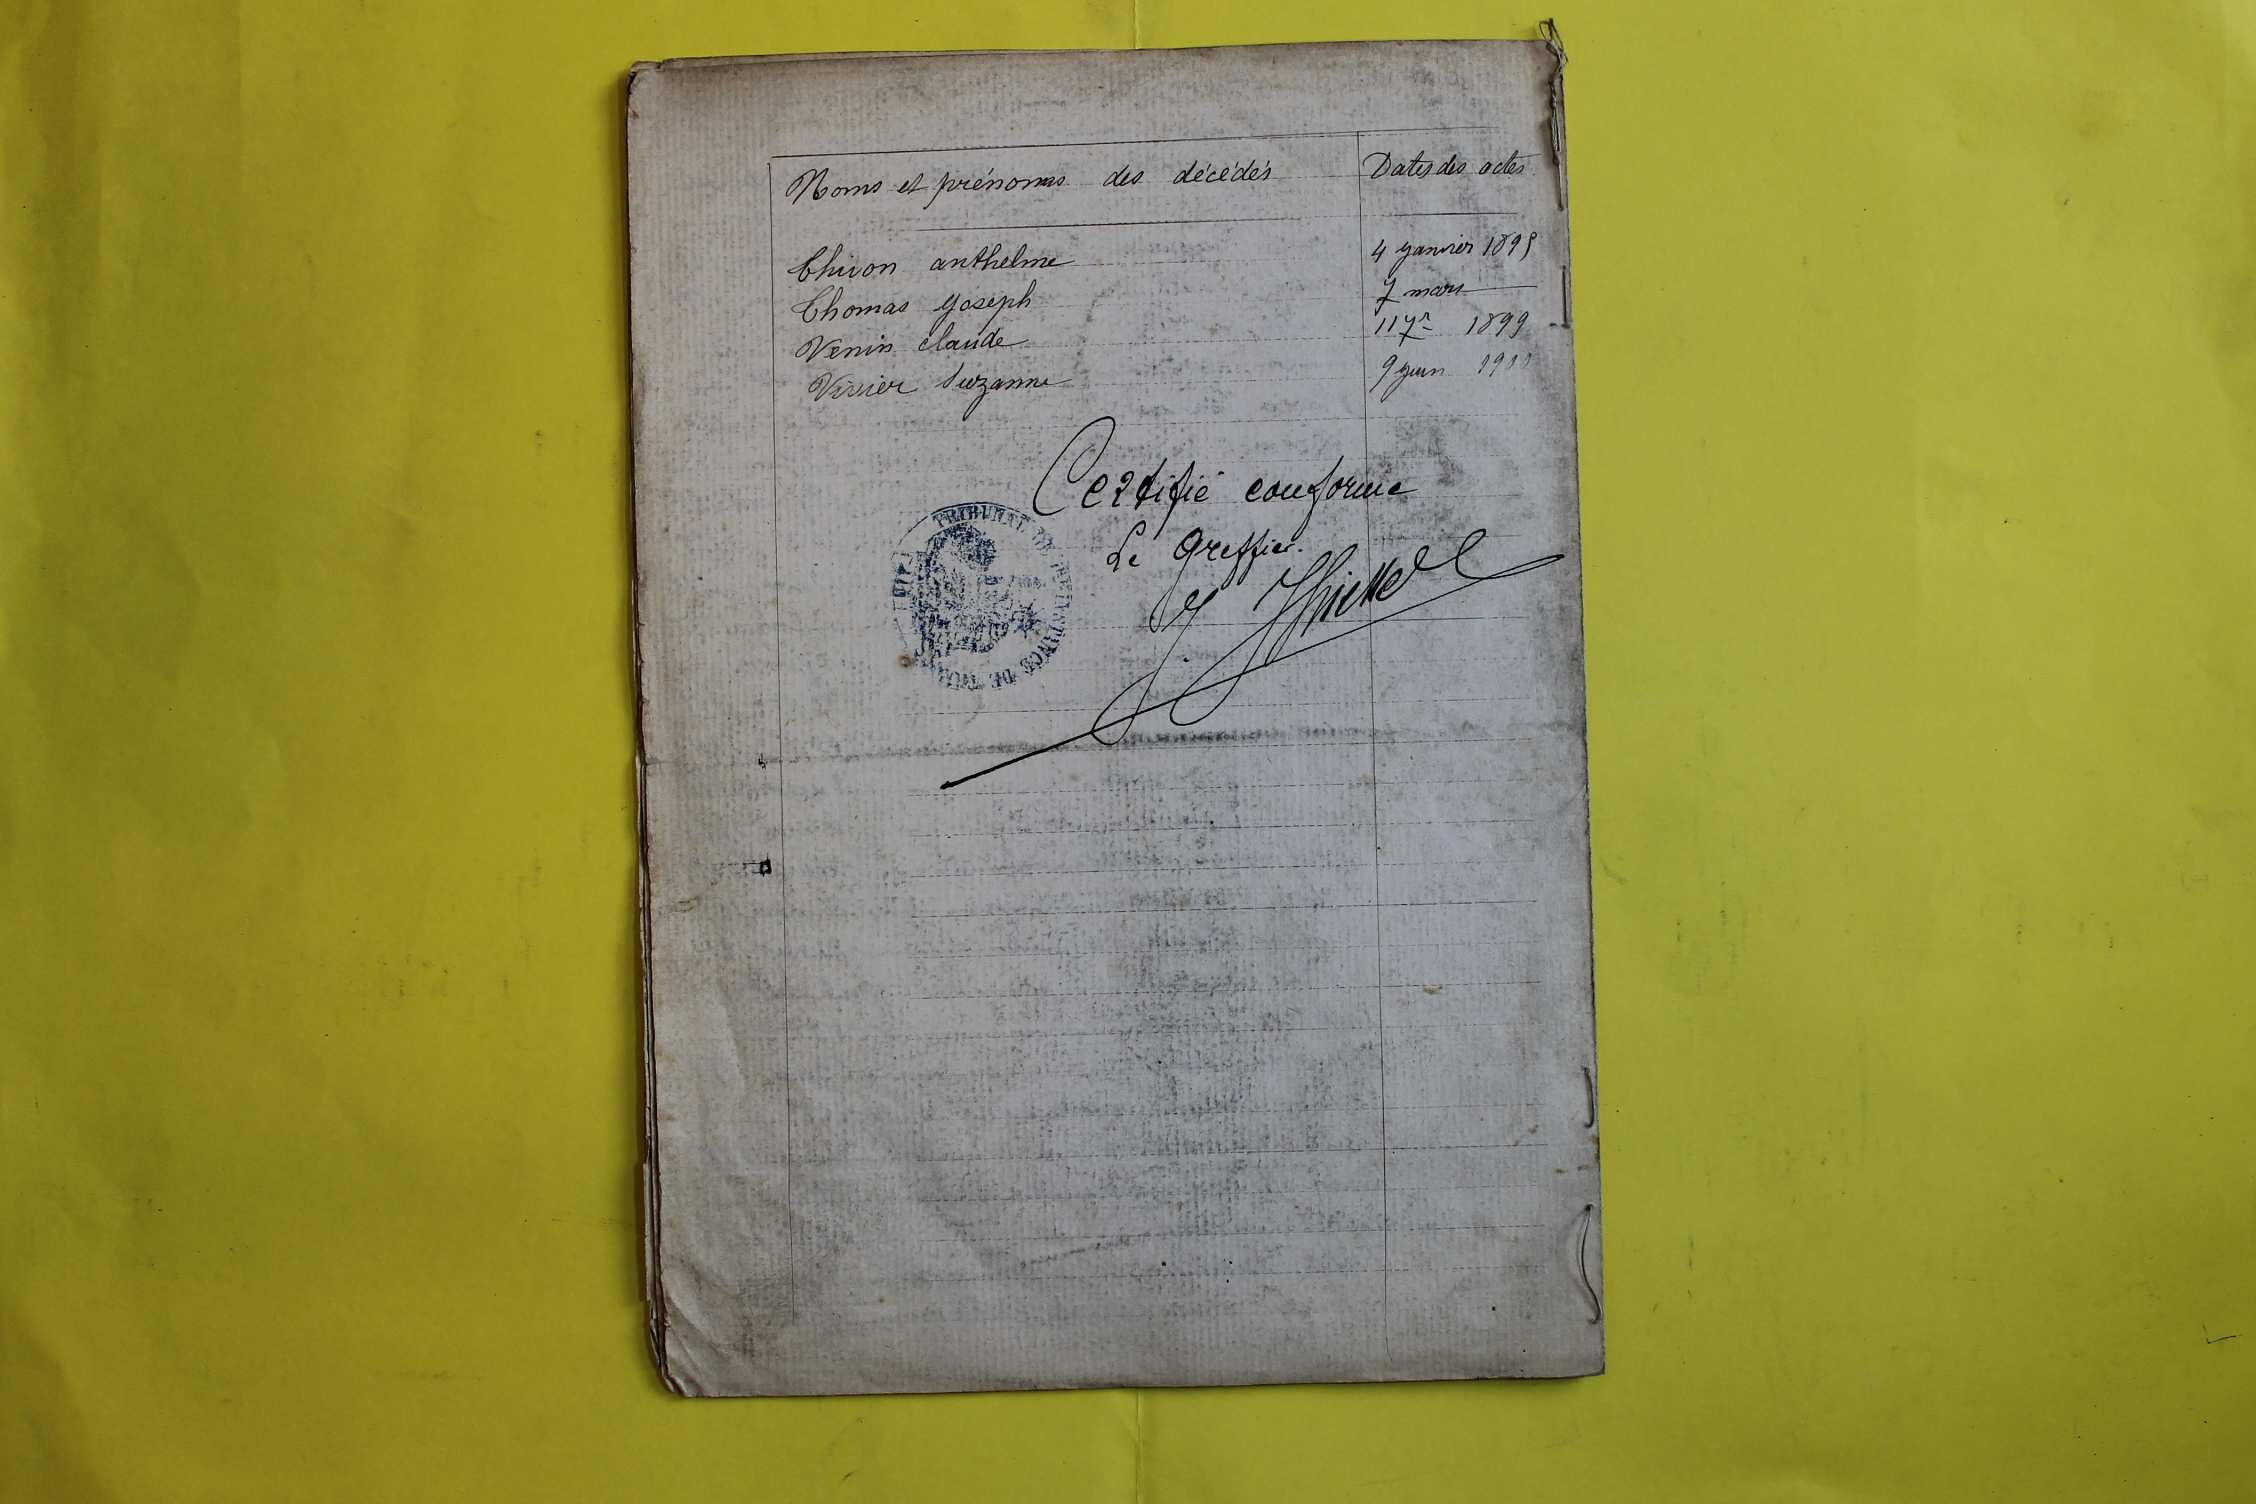 Noms et prénoms des décédés Dates des actes
Thivon anthelme 4 Janvier 1895
Thomas Joseph 7 mars
Venin claude 11 7re 1899
Vivier Suzanne 9 juin
Certifié conforme
Le Greffier.
TRIBUNAL DE 1ERE INSTANCE DE